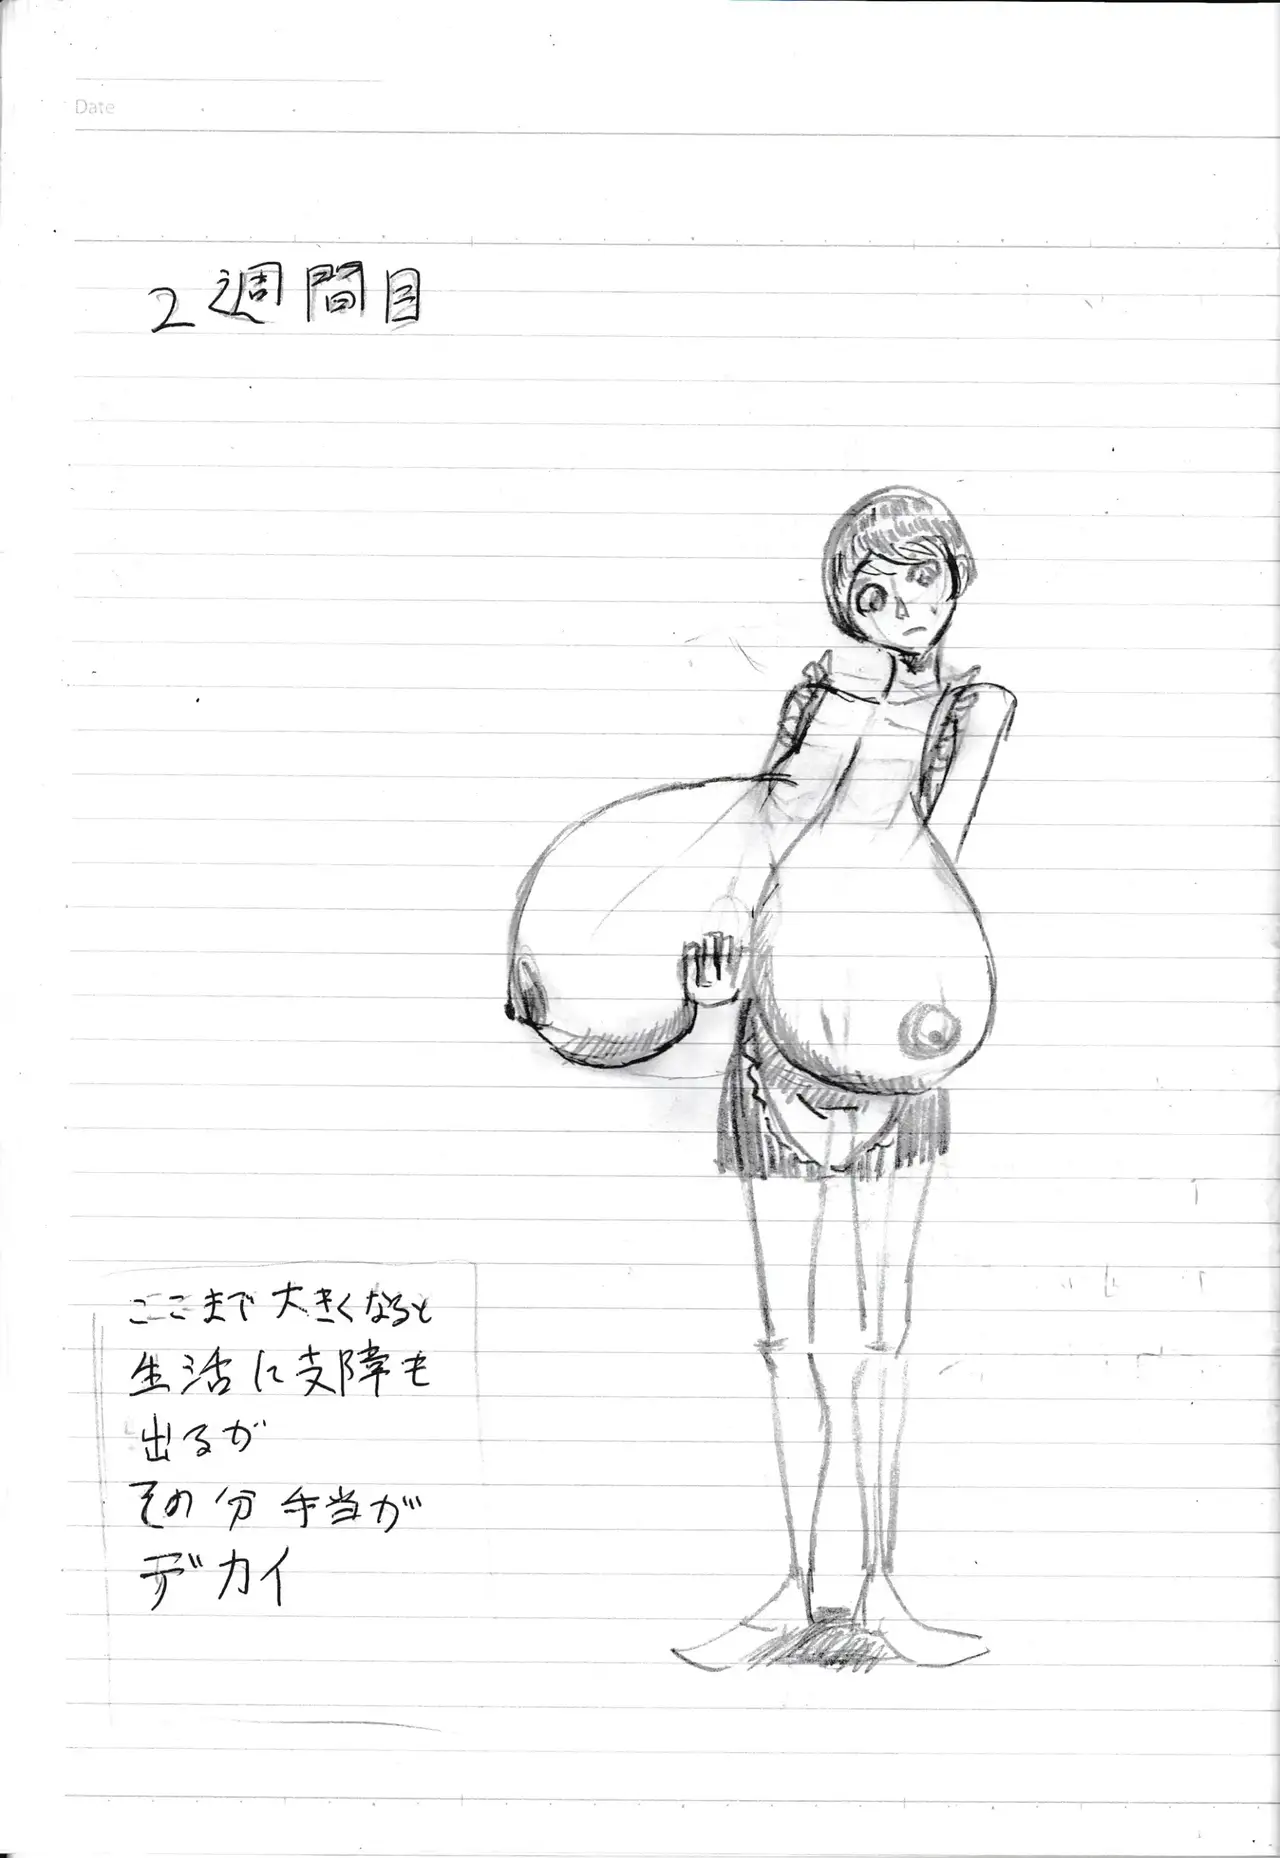 Date
2週間目
ここまで大きくなると
生活に支障も
出るが
その分手当が
デカイ